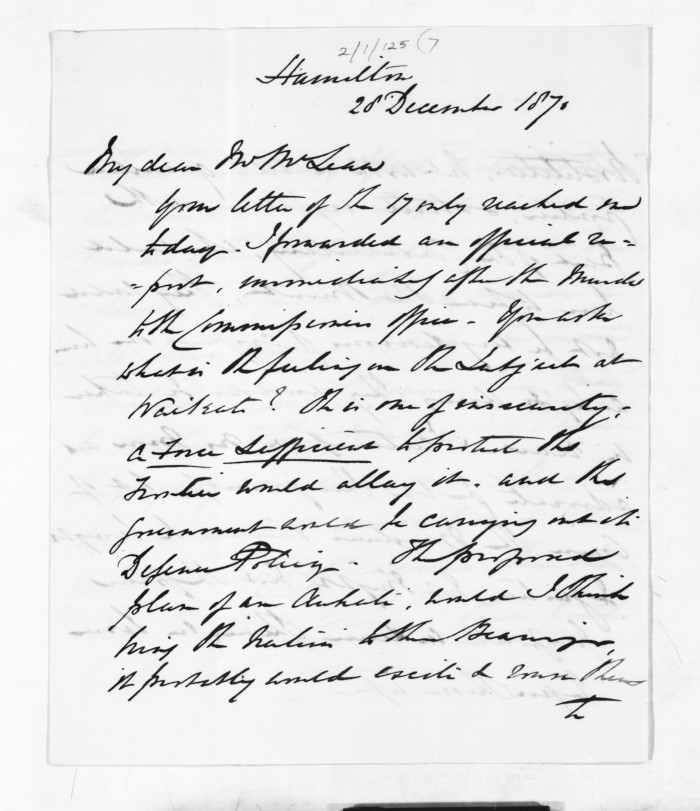 2/1/125 (7
Hamilton
28 December 1870
My dear Mr McLean
Your letter of the 17 only reached me
today. I forwarded an official re=
=port, immediately after the Murder
to the Commissioners office. You ask
what is the feeling on the Subject at
Waikato? It is one of insecurity.
a Force Sufficient to protect the
Frontier would allay it. and the
Government would be carrying out its
Defence Policy. The proposed
plan of an Aukati, would I think
bring the Natives to their Bearings,
it probably would excite & rouse them
to